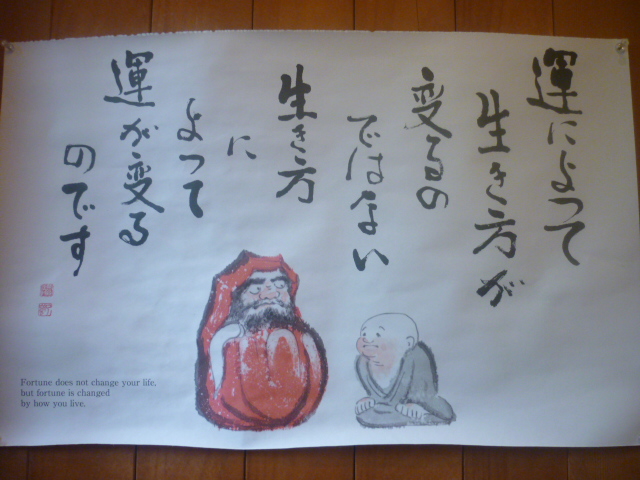 運によって
生き方が
変るの
ではない
生き方
に
よって
運が変る
のです
Fortune does not change your life,
but fortune is changed
by how you live.